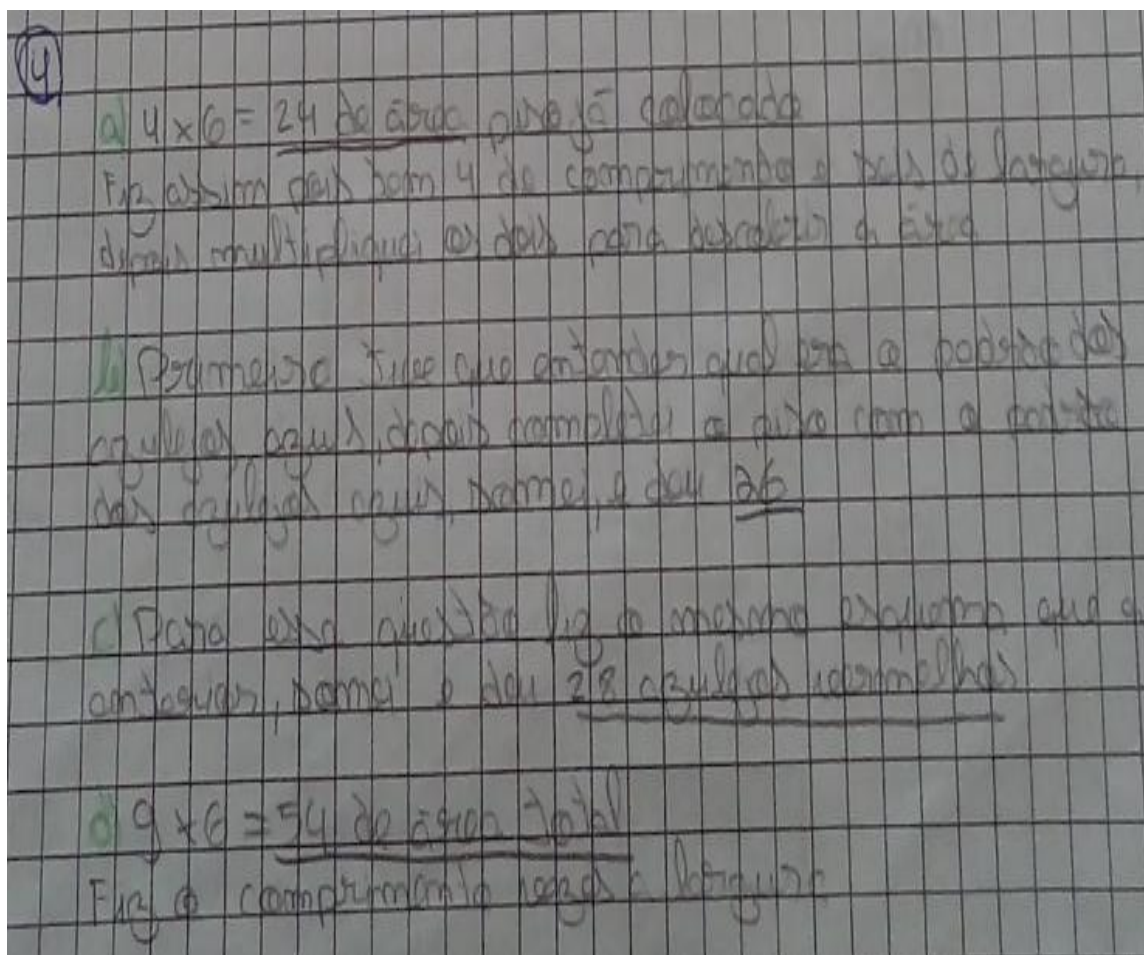 4
a) 4 x 6 = 24 de área piso já colocado
Fiz assim pois tem 4 de comprimento e seis de largura,
depois multipliquei os dois para descobrir a área
b) Primeiro tive que entender qual era o padrão dos
azulejos azuis, depois completei o piso com o padrão
dos azulejos azuis, somei, e deu 26
c) Para essa questão fiz o mesmo esquema que a
anterior, somei e deu 28 azulejos vermelhos
d) 9 x 6 = 54 de área total
Fiz o comprimento vezes a largura